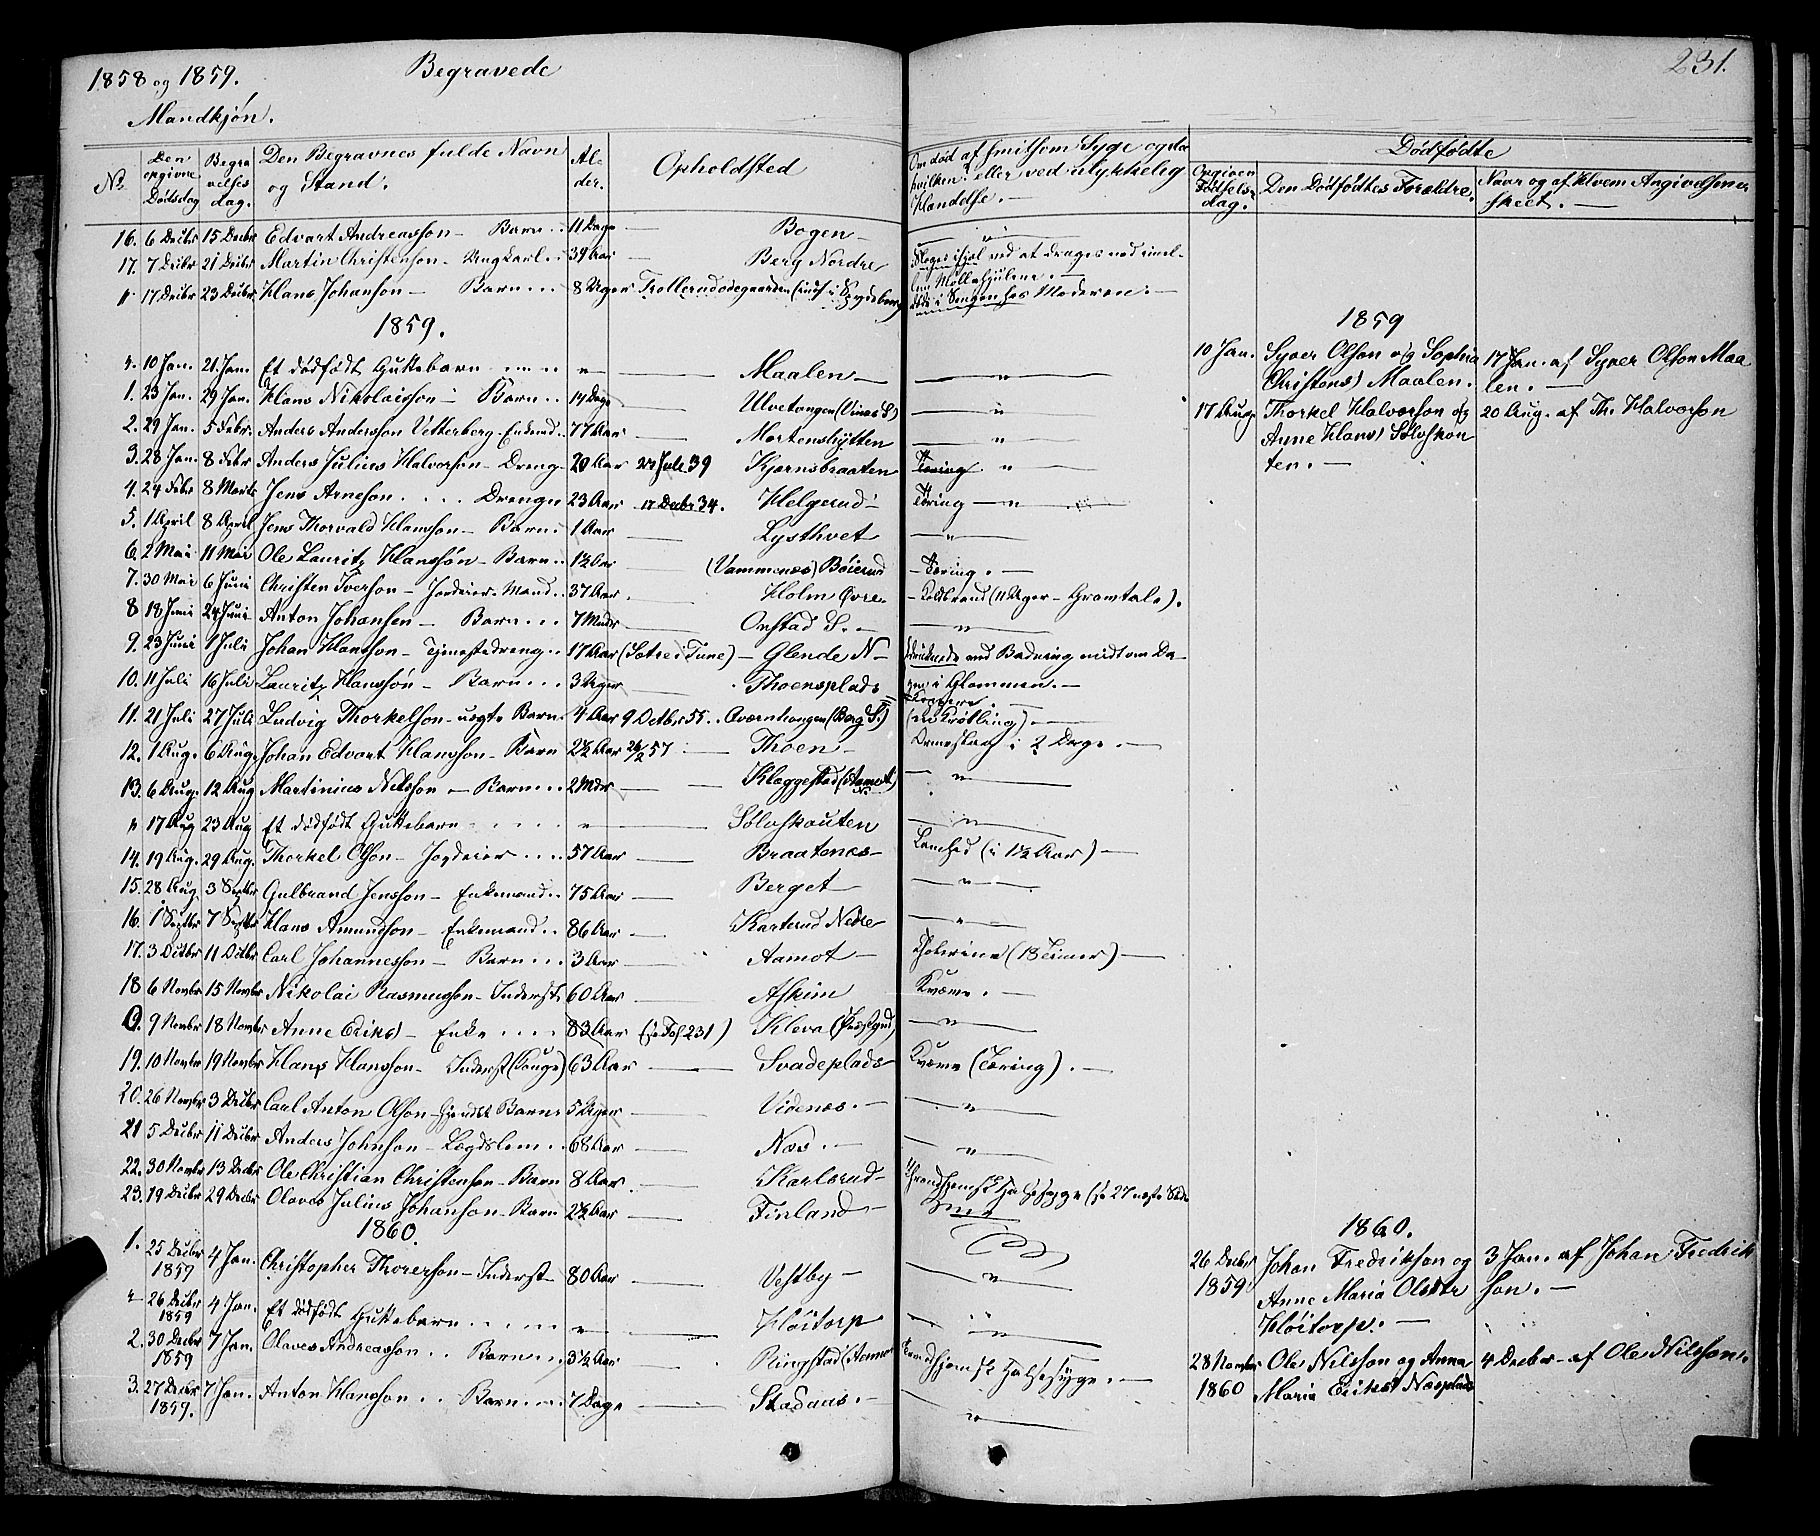 1858 og 1859. Begravede 231.
Mandkjøn.
No. Den opgivne Dødsdag Begravelses dag. Den Begravnes fulde Navn og Stand. Alder. Opholdsted Om død af smitsom Syge og da hvilken? eller ved ulykkelig Hændelse. Dødfødte
Opgiven Fødselsdag. Den Dødfødtes Forældre. Naar og af hvem Angivelsen er skeet.
16. 6 Decbr 15 Decbr Edvart Andreasson Barn 11 Dage Bogen "
17. 7 Decbr 21 Decbr Martin Christenson Ungkarl 39 Aar Berg Nordre Sloges ihjel ved at drages ned imellem Møllehjulene.
" 17 Decbr 23 Decbr Hans Johanson Barn 8 Uger Trollerudødegaarden i Spydeberg Døde i Sengen hos Moderen.
1859. 1859
" 10 Jan. 21 Jan. Et dødfødt Guttebarn " Maalen " 10 Jan. Syver Olson og Sophia Christens) Maalen. 17 Jan. af Syver Olson Maalen.
1. 23 Jan. 29 Jan. Hans Nikolaisson Barn 14 Dage Ulvetangen (Vines S) "
2. 29 Jan. 5 Febr. Anders Andersson Vetterberg Enkmd 77 Aar Mortenshytten " 17 Aug. Thorkel Halvorson og Anne Hans) Sølvskouten. 20 Aug. af Th. Halvorson
3. 28 Jan. 8 Febr Anders Julius Halvorson Dreng 20 Aar 24 Juli 39 Kjærnsbraaten Tæring "
4. 24 Febr 8 Marts Jens Arneson Dreng 23 Aar 17 Decbr 34. Helgerud Tæring "
5. 1 April 8 April Jens Thorvald Hansson Barn 1 Aar Lysthvet "
6. 2 Mai 11 Mai Ole Lauritz Hansson Barn 1½ Aar (Vammenæs) Böierud Tæring.
7. 30 Mai 6 Juni Christen Iverson Jordeier Mand 37 Aar Holm Øvre Koldbrand (11 Uger Gramtale).
8 18 Juni 24 Juni Anton Johansen Barn 7 Mdr Onstad S. "
9. 23 Juni 1 Juli Johan Hansson Tjenestedreng 17 Aar (Sætre i Tune) Glende N druknede ved Badning midt om Dagen i Glommen.
10. 11 Juli 16 Juli Lauritz Hansson Barn 3 Uger Thoensplads
11. 21 Juli 27 Juli Ludvig Thorkelson uægte Barn 4 Aar 9 Octbr 55. Qværnhaugen (Berg S.)
12. 1 Aug. 6 Aug. Johan Edvart Hansson Barn 2½ Aar 26/2 57 Thoen Ormeslag i 2 Dage.
13. 6 Aug. 12 Aug Martinius Nilsson Barn 2 Mdr Klæggestad (Aamot N.) "
" 17 Aug 23 Aug Et dødfødt Guttebarn " Sølvskouten "
14. 19 Aug. 29 Aug. Thorkel Olson Jordeier 57 Aar Braatenæs Lamhed (i 1½ Aar)
15. 28 Aug. 3 Septbr Gulbrand Jensson Enkemand 75 Aar Berget "
16. 1 Septbr 7 Septbr Hans Amundson Enkemand 86 Aar Karterud Nedre "
17. 3 Octbr 11 Octbr Carl Johannesson Barn 3 Aar Aamot Cholerine (18 Timer)
18 6 Novbr 15 Novbr Nikolai Rasmusson Inderst 60 Aar Askim Kræme.
9 Novbr 18 Novbr Anne Eriks) Enke 83 Aar (se Fol 231) Kleva "
19. 10 Novbr 19 Novbr Hans Hansson Inderst 63 Aar Svadeplads Kræme (Tæring).
20. 26 Novbr 3 Decbr Carl Anton Olson Barn 5 Uger Vidnæs. "
21 5 Decbr 11 Decbr Anders Johnson Lægdslem 68 Aar Næs. "
22. 30 Novbr 13 Decbr Ole Christian Christenson Barn 8 Aar Karlsrud Throndhjemsk Halssyge
23. 19 Decbr 29 Decbr Olaves Julius Johanson Barn 2½ Aar Finland
1860. 1860.
1. 25 Decbr 1859 4 Jan. Christopher Thorerson Inderst 80 Aar Vestby " 26 Decbr 1859 Johan Fredrikson og Anne Maria Olsdtr Höitorp. 3 Jan. af Johan Fredrikson.
" 26 Decbr 1859 4 Jan. Et dødfødt Guttebarn " Höitorp "
2. 30 Decbr 1859 7 Jan. Olaves Andreasson Barn 3½ Aar Ringstad Trondhjemsk Halssyge. 28 Novbr 1860 Ole Nilsson og Anna Maria Eriks) Næsplads 4 Decbr af Ole Nilsson.
3. 27 Decbr 1859. 7 Jan. Anton Hansson Barn 7 Dage Stadaas. "